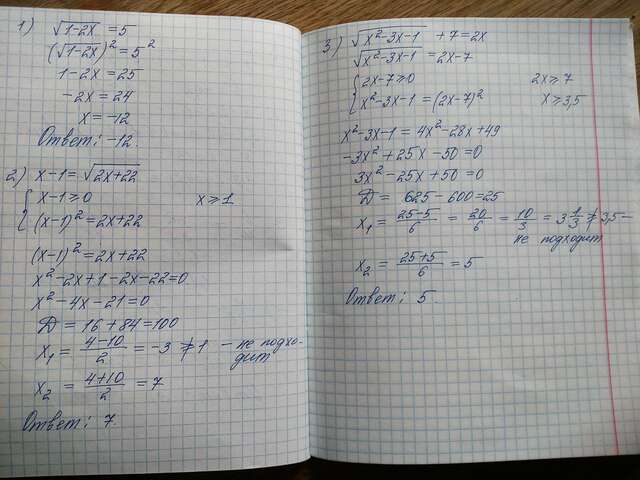 1) √(1-2x) = 5
(√(1-2x))² = 5²
1-2x = 25
-2x = 24
x = -12
Ответ: -12.
2) x-1 = √(2x+22)
{ x-1 ⩾ 0 x ⩾ 1
(x-1)² = 2x+22
(x-1)² = 2x+22
x²-2x+1-2x-22=0
x²-4x-21=0
Д = 16+84=100
x₁ = (4-10)/2 = -3 ⋡ 1 - не подхо-
дит
x₂ = (4+10)/2 = 7
Ответ: 7.
3) √(x²-3x-1) + 7 = 2x
√(x²-3x-1) = 2x-7
{ 2x-7 ⩾ 0 2x ⩾ 7
x²-3x-1 = (2x-7)² x ⩾ 3,5
x²-3x-1 = 4x²-28x+49
-3x²+25x-50=0
3x²-25x+50=0
Д = 625-600=25
x₁ = (25-5)/6 = 20/6 = 10/3 = 3 1/3 ⋡ 3,5 -
не подходит
x₂ = (25+5)/6 = 5
Ответ: 5.